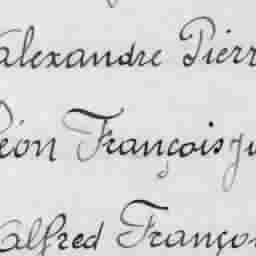 Alexandre Pierr
Léon François Ju
Alfred Franço